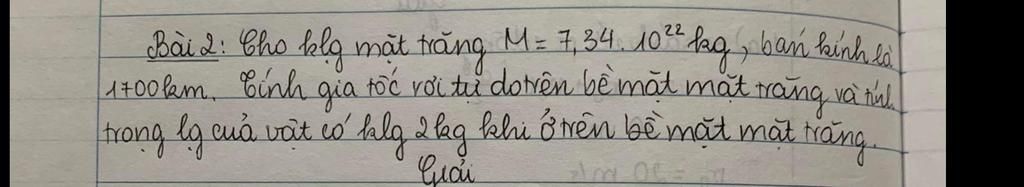 Bài 2: Cho klg mặt trăng M = 7,34.10²² kg, bán kính là
1700km. Tính gia tốc rơi tự do trên bề mặt mặt trăng và tính
trọng lg của vật có klg 2kg khi ở trên bề mặt mặt trăng.
Giải